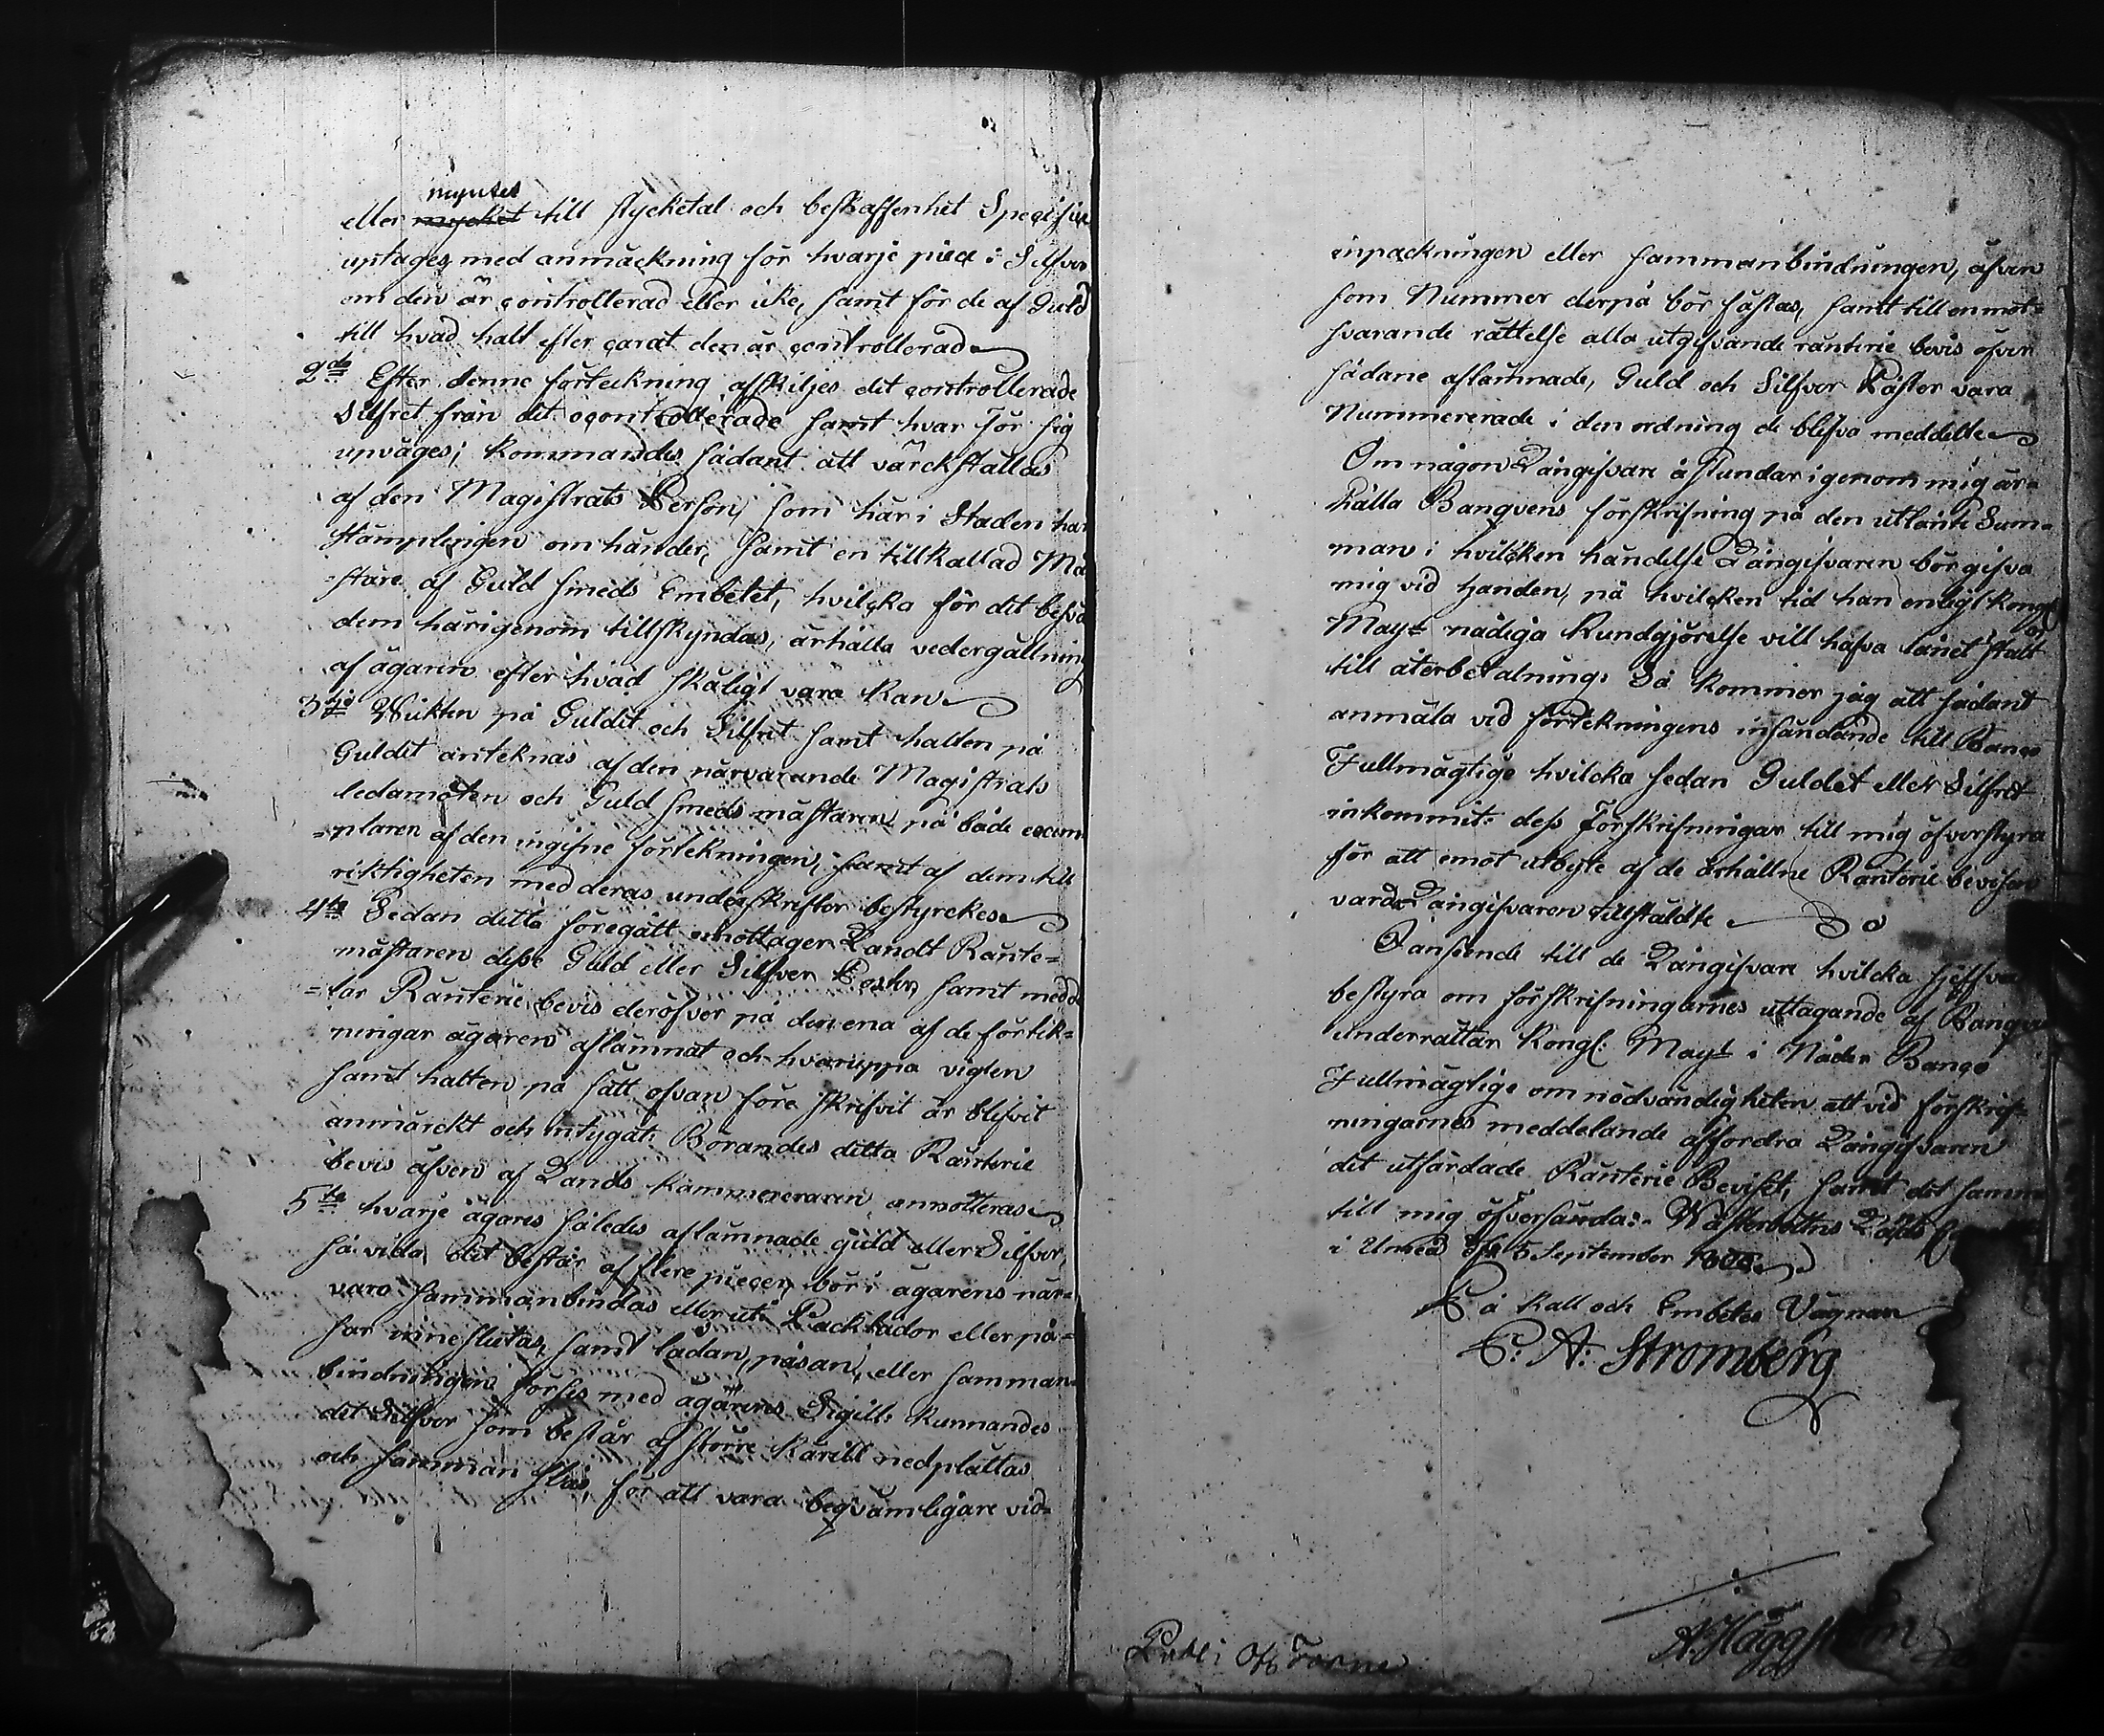 myntet
eller mycket till stycketal och beskaffenhet Specifice
uptages, med anmärckning för hvarje piece i Silfver
om den är controllerad eller icke, samt för de af Guld
till hvad halt efter carat den är controllerad
2do Efter denne förteckning affskiljes det controllerade
Silfret från det ocontrollerade samt hvar för sig
upväges; kommandes sådant att värckställas
af den Magistrats Person, som här i Staden har
Stämplingen om händer, samt en tillkallad Mä
stare af Guld smeds Embetet, hvilcka för det besvä
dem härigenom tillskyndas, ärhålla vedergällning
af ägaren efter hvad skäligt vara kan
3tio Wickten på Guldet och Silfret samt halten på
Guldet anteknas af den närvarande Magistrats
ledamoten och Guld smeds mästaren på både exem
=plaren af den ingifne förtekningen, samt af dem till
riktigheten med deras underskrifter bestyrckes
4to Sedan detta föregått emottager Landt Ränte=
mästaren desse Guld eller Silfver Poster, samt medde
=lar Ränterie bevis deröfver på den ena af de förtek=
ningar ägaren aflämnat och hvaruppå vigten
samt halten på sätt ofvan före skrifvit är blifvit
anmärckt och intygat. Börandes detta Ränterie
bevis äfven af Lands kammereraren annotteras
5to hvarje ägares således aflämnade guld eller Silfver,
så vida det består af flere piecer, bör i ägarens när=
varo sammanbindas eller uti Packlådor eller på=
sar inneslutas, samt lådan, påsan, eller samman=
bindningen förses med ägarens Sigill: kunnandes
det Silfver som består af större kärill nedplattas
och samman slås, för att vara beqvämligare vid
inpackningen eller sammanbindningen, äfven
som Nummer derpå bör fästas, samt till en mot=
svarande rättelse alla utgifvande ränterie bevis öfver
sådane aflämnade, Guld och Silfver Påster vara
Nummererade i den ordning de blifva meddelte
Om någon Långifvare åstundar igenom mig är=
hålla Banqvens förskrifning på den utlånte Sum=
man i hvilcken händelse Långifvaren bör gifva
mig vid handen, på hvilcken tid han enligt Kongl
Mayts nådiga Kundgjörelse vill hafva lånet stält
till återbetalning. Så kommer jag att sådant
anmäla vid förtekningens insändande till Banco
Fullmägtige hvilcka sedan Guldet eller Silfret
inkommit. dess Förskrifningar till mig öfverstyra
för att emot utbyte af de ärhållne Ränterie bevisen
varda Långifvaren tillstäldte
Vanseende till de Långifvare hvilcka sjelfva
bestyra om förskrifningarnes uttagande af Banque
underrättar Kongl. Mayt i Nåder Banco
Fullmägtige om nödvändigheten att vid förskrif=
ningarnes meddelande affordra Långifvaren
det utfärdade Ränterie Beviset, samt det samma
till mig öfversända. Wästerbottns Lands
i Umeå den 5 September 1808
På kall och Embetes Vägnar
P: A: Stromberg
A: Häggström
Publ: Of: Torne